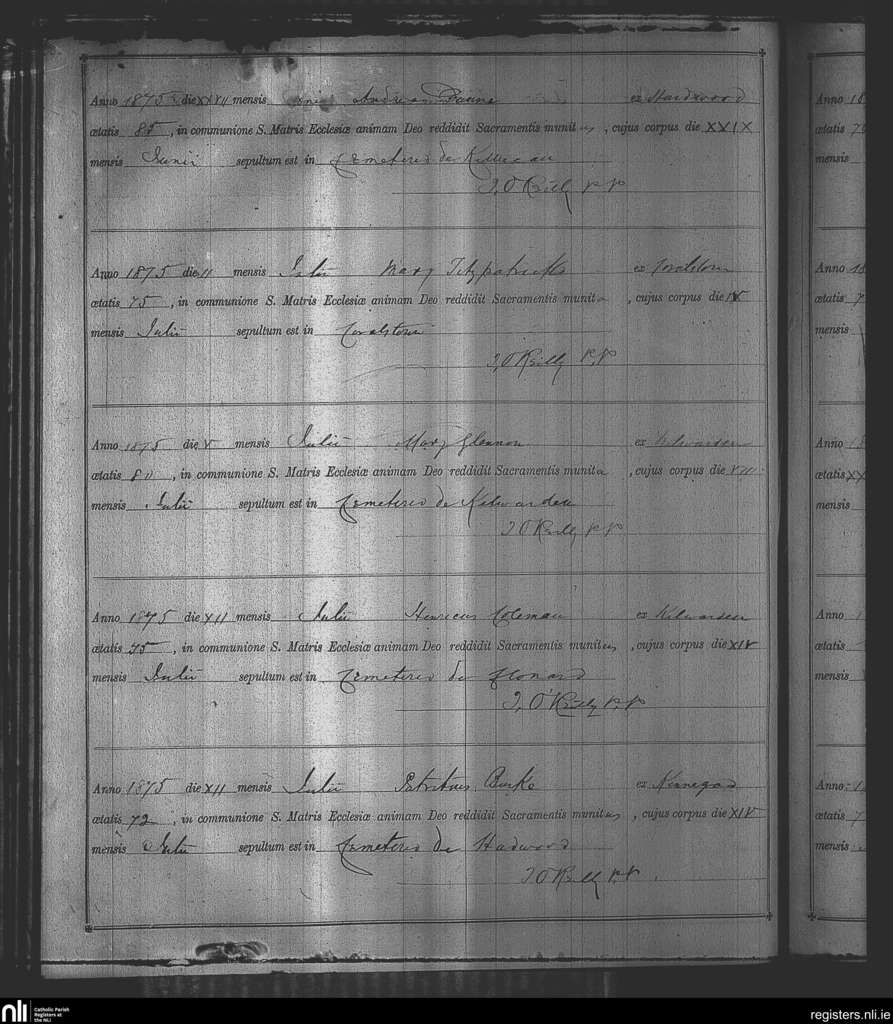 Anno 1875 die XXVII mensis Junii Andreas ex Hardwood
ætatis 85, in communione S. Matris Ecclesiæ animam Deo reddidit Sacramentis munitus, cujus corpus die XXIX
mensis Junii sepultum est in Cemeterio de Killucan
J, O'Reilly P.P.
Anno 1875 die II mensis Julii Mary Fitzpatrick ex Coralstown
ætatis 75, in communione S. Matris Ecclesiæ animam Deo reddidit Sacramentis munita, cujus corpus die IV
mensis Julii sepultum est in Coralstown
J, O'Reilly P.P.
Anno 1875 die V mensis Julii Mary Glennon ex Kilwarden
ætatis 80, in communione S. Matris Ecclesiæ animam Deo reddidit Sacramentis munita, cujus corpus die VII
mensis Julii sepultum est in Cemeterio de Kilwarden
J O'Reilly P.P.
Anno 1875 die XII mensis Julii Henricus Coleman ex Kilwarden
ætatis 75, in communione S. Matris Ecclesiæ animam Deo reddidit Sacramentis munitus, cujus corpus die XIV
mensis Julii sepultum est in Cemeterio de Clonard
J, O'Reilly P.P.
Anno 1875 die XII mensis Julii Patritius Burke ex Kinnegad
ætatis 72, in communione S. Matris Ecclesiæ animam Deo reddidit Sacramentis munitus, cujus corpus die XIV
mensis Julii sepultum est in Cemeterio de Hadwood
J O'Reilly P.P.
Anno 18
ætatis 7
mensis
Anno 18
ætatis 7
mensis
Anno 18
ætatis XX
mensis
Anno 1
ætatis
mensis
Anno 1
ætatis 7
mensis
nli Catholic Parish
Registers at
the NLI
registers.nli.ie